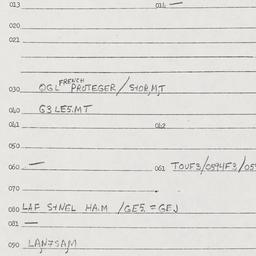 013 014 —
020
021
030 OGL FRENCH PROTEGER / STOR,MT
040 G3 LES.MT
041 042
050
060 — 061 TOUF3/0594F3/05
070
080 LAF STNEL HA.M / GES. = GEJ
081 —
090 LAN7SAM